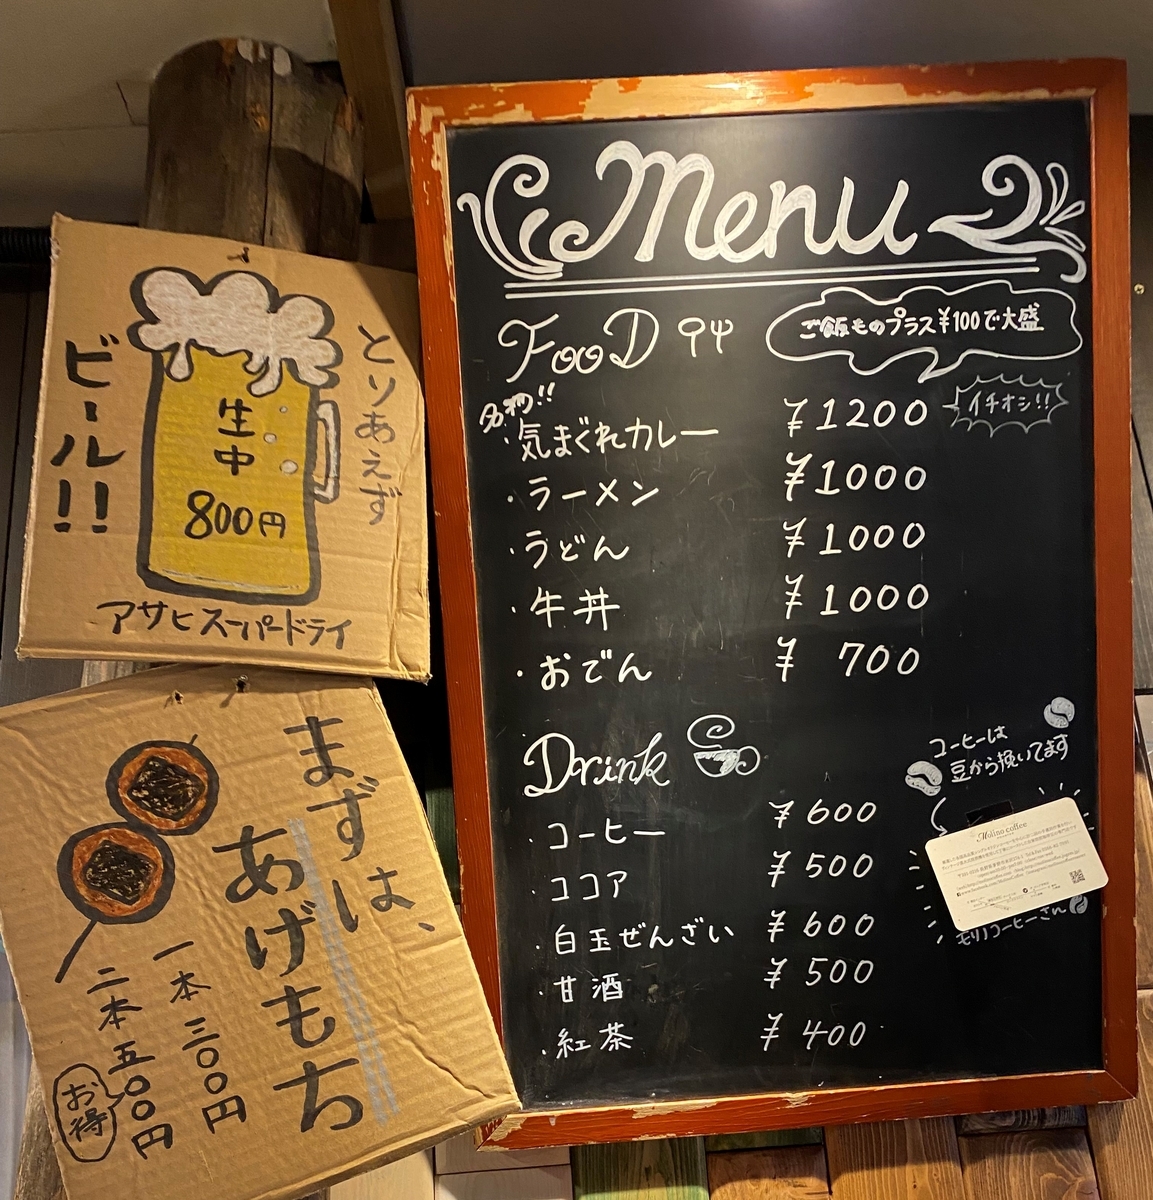 とりあえず
ビール!!
生中
800円
アサヒスーパードライ
まずは、
あげもち
一本 三〇〇円
二本 五〇〇円
お得
Menu
FooD
ご飯ものプラス¥100で大盛
名物!!
・気まぐれカレー ¥1200
イチオシ!!
・ラーメン ¥1000
・うどん ¥1000
・牛丼 ¥1000
・おでん ¥ 700
Drink
コーヒーは
豆から挽いてます
・コーヒー ¥600
・ココア ¥500
・白玉ぜんざい ¥600
・甘酒 ¥500
・紅茶 ¥400
Molino coffee
モリノコーヒーさん